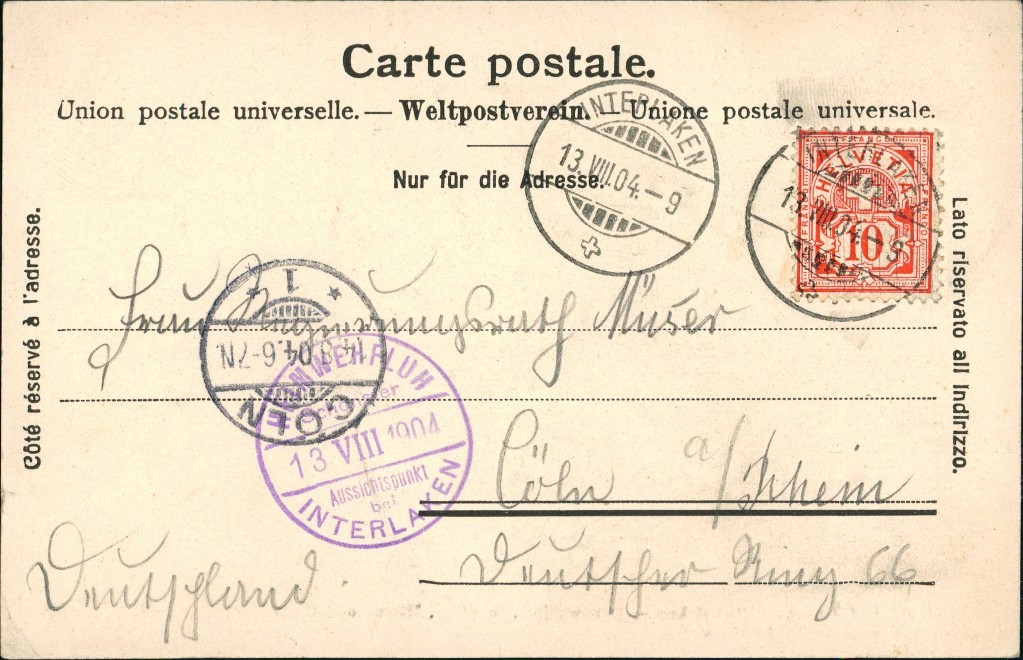 Carte postale.
Union postale universelle. — Weltpostverein. — Unione postale universale.
Nur für die Adresse.
Côté réservé à l'adresse.
Lato riservato all indirizzo.
INTERLAKEN
13.VIII.04.–9
HELVETIA
FRANCO
10
INTERLAKEN
13.VIII.04.–9
1
14.8.04.6-7N.
CÖLN
HEIMWEHFLUH
Schönster
13 VIII 1904
Aussichtspunkt
bei
INTERLAKEN
Frau Muser
Cöln a/Rhein
Deutscher Ring 66
Deutschland.